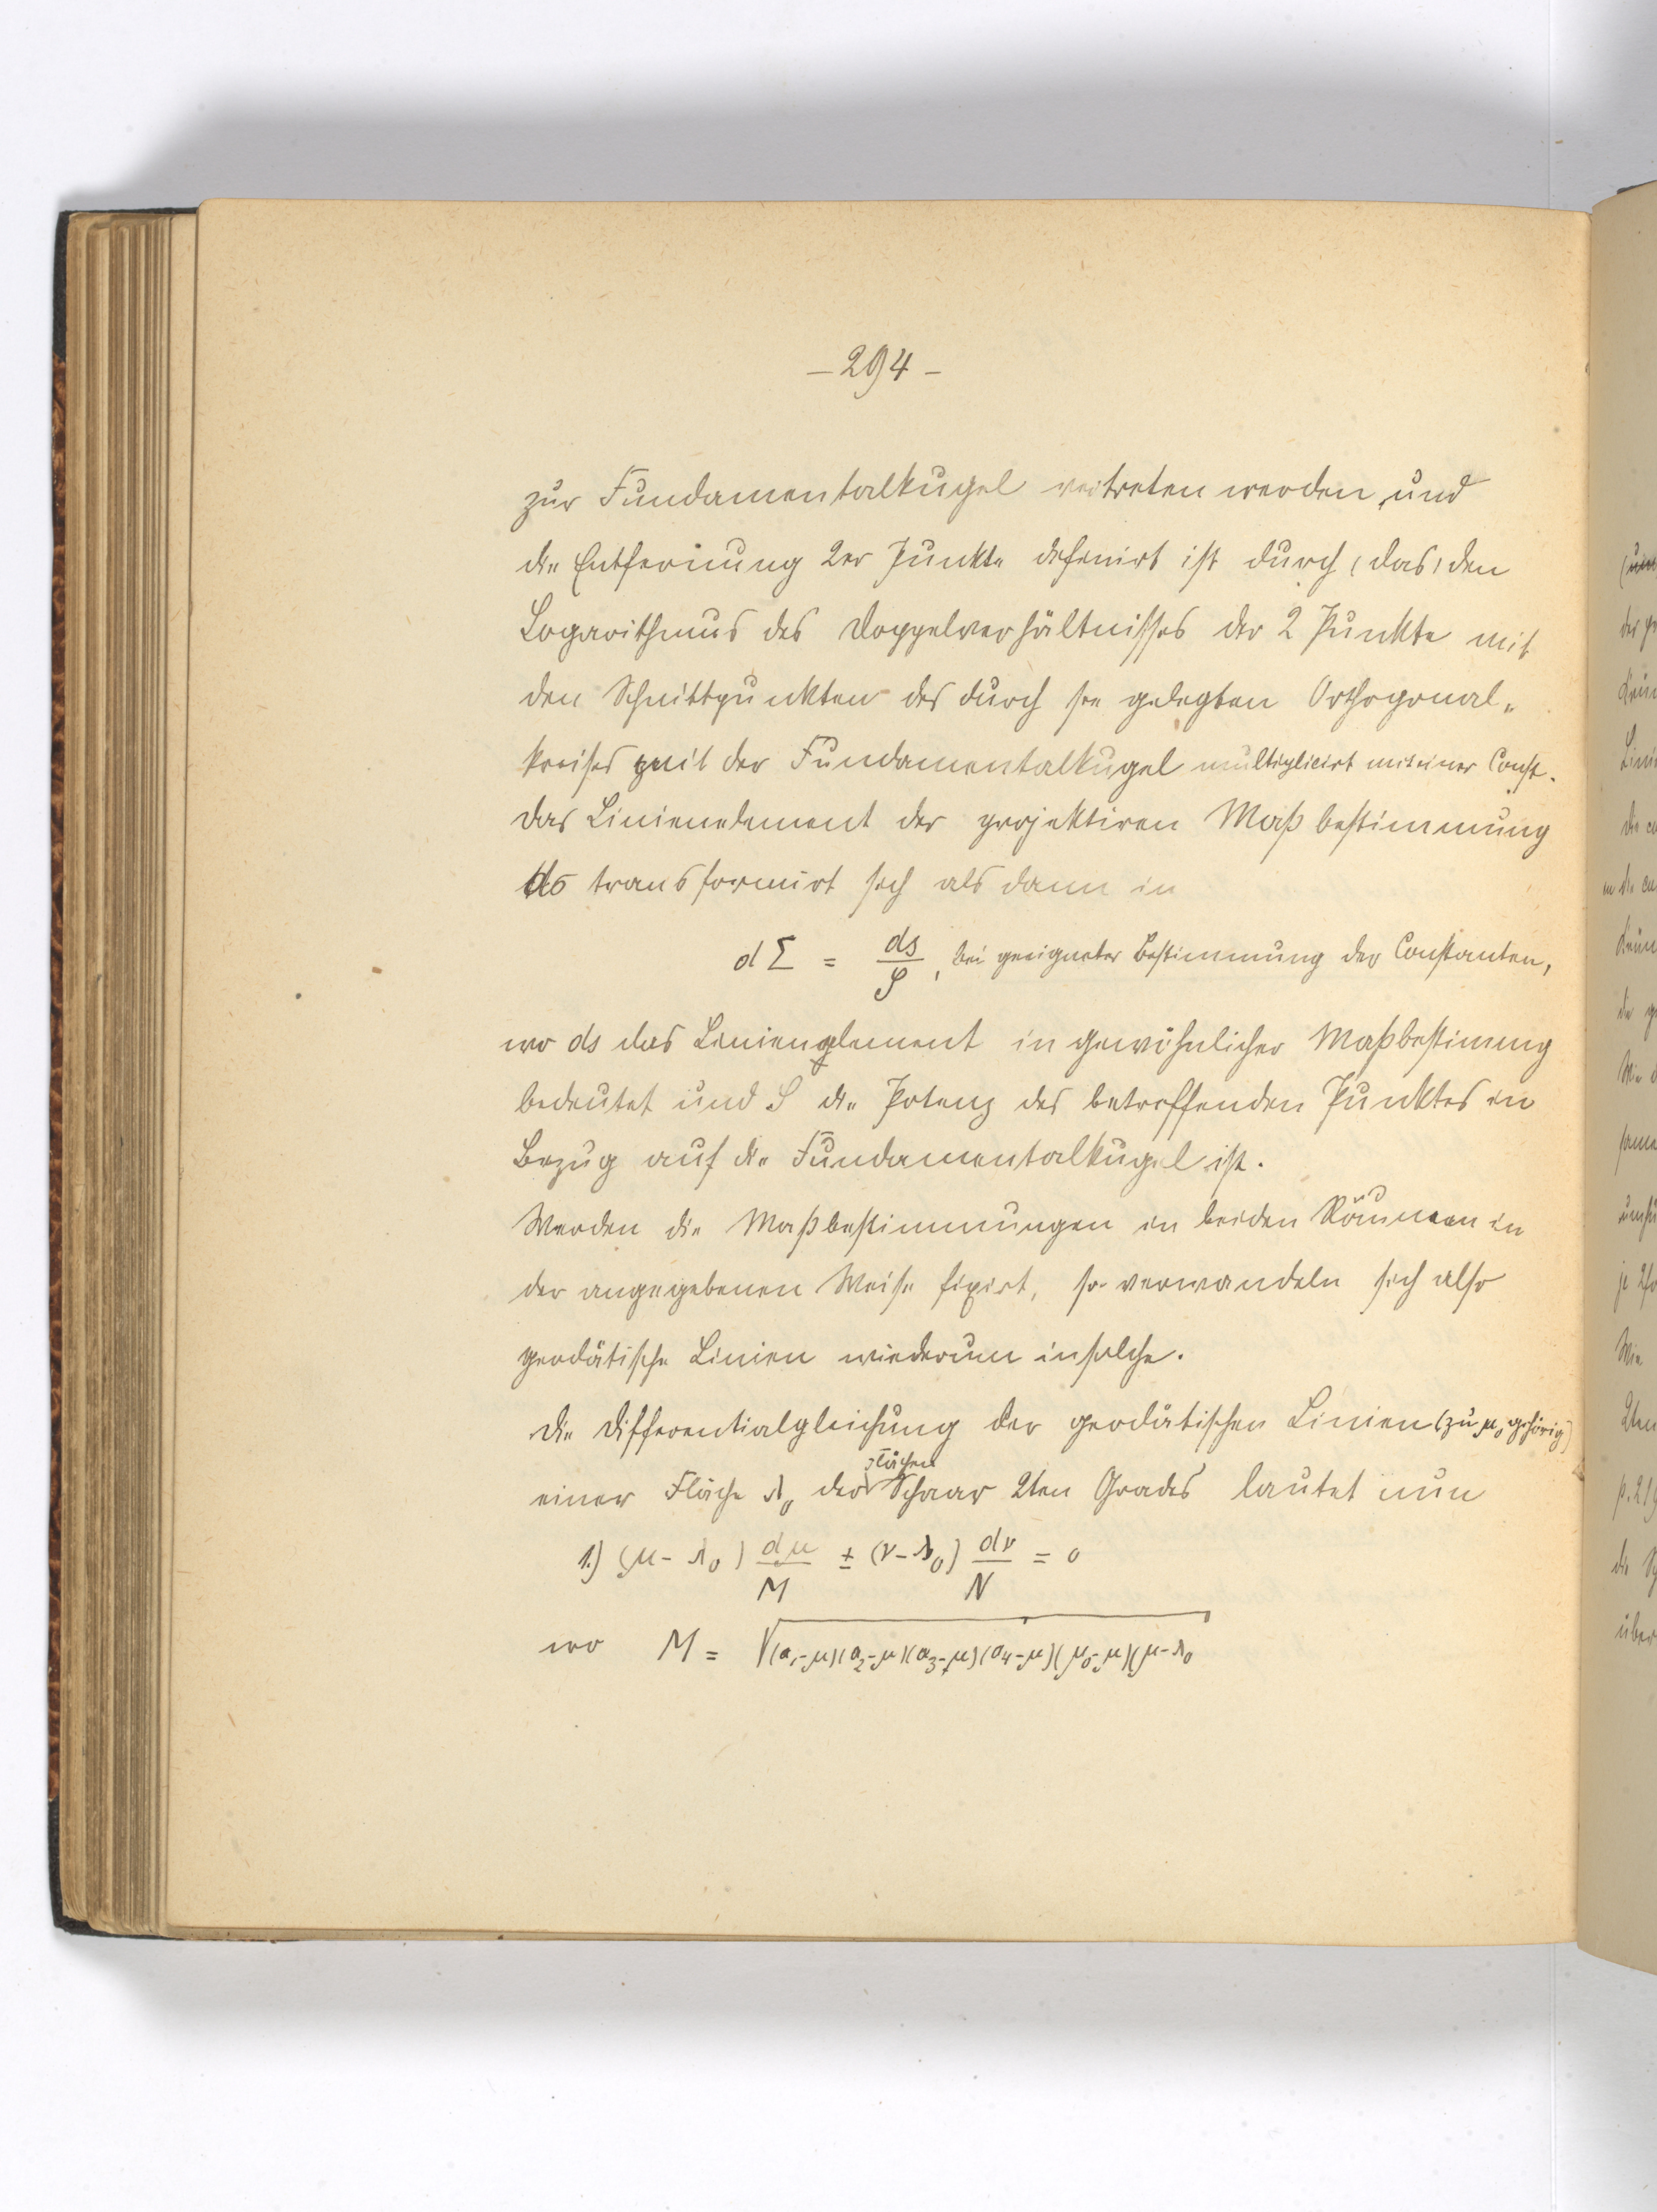 – 294 –
zur Fundamentalkugel vertreten werden, und
die Entfernung 2er Punkte definirt ist durch (das) den
Logarithmus des Doppelverhältnisses der 2 Punkte mit
den Schnittpunkten des durch sie gelegten Orthogonal-
kreises mit der Fundamentalkugel multiplicirt mit einer Const.
Das Linienelement der projektiven Maßbestimmung
dσ transformirt sich alsdann in
dΣ = ds/S, bei geeigneter Bestimmung der Constanten,
wo ds das Linienelement in gewöhnlicher Maßbestimung
bedeutet und S die Potenz des betreffenden Punktes in
Bezug auf die Fundamentalkugel ist.
Werden die Maßbestimmungen in beiden Räumen in
der angegebenen Weise fixirt, so verwandeln sich also
geodätische Linien wiederum in solche.
Die Differentialgleichung der geodätischen Linien (zu μ₀ gehörig)
einer Fläche λ₀ der Flächen Schaar 2ten Grades lautet nun
1.) (μ - λ₀) dμ/M ± (ν - λ₀) dν/N = 0
wo M = √(a₁-μ)(a₂-μ)(a₃-μ)(a₄-μ)(μ₀-μ)(μ-λ₀